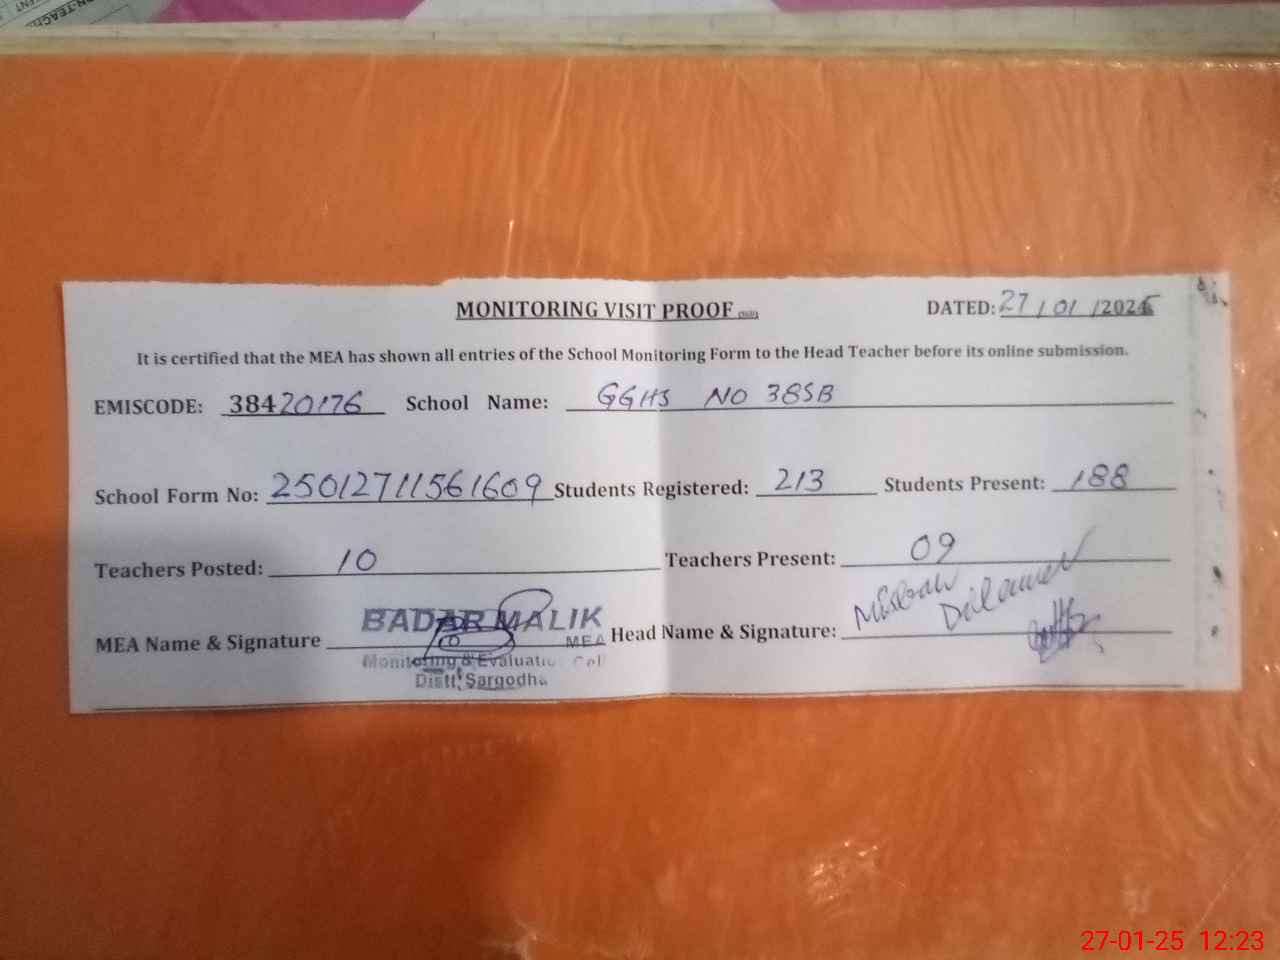 MONITORING VISIT PROOF
DATED: 27/01/2025
It is certified that the MEA has shown all entries of the School Monitoring Form to the Head Teacher before its online submission.
EMISCODE: 38420176 School Name: GGHS NO 38SB
School Form No: 25012711561609 Students Registered: 213 Students Present: 188
Teachers Posted: 10 Teachers Present: 09
MEA Name & Signature BADAR MALIK Head Name & Signature: Misbah Dilawer
MEA
Monitoring & Evaluation Cell
Distt, Sargodha
27-01-25 12:23